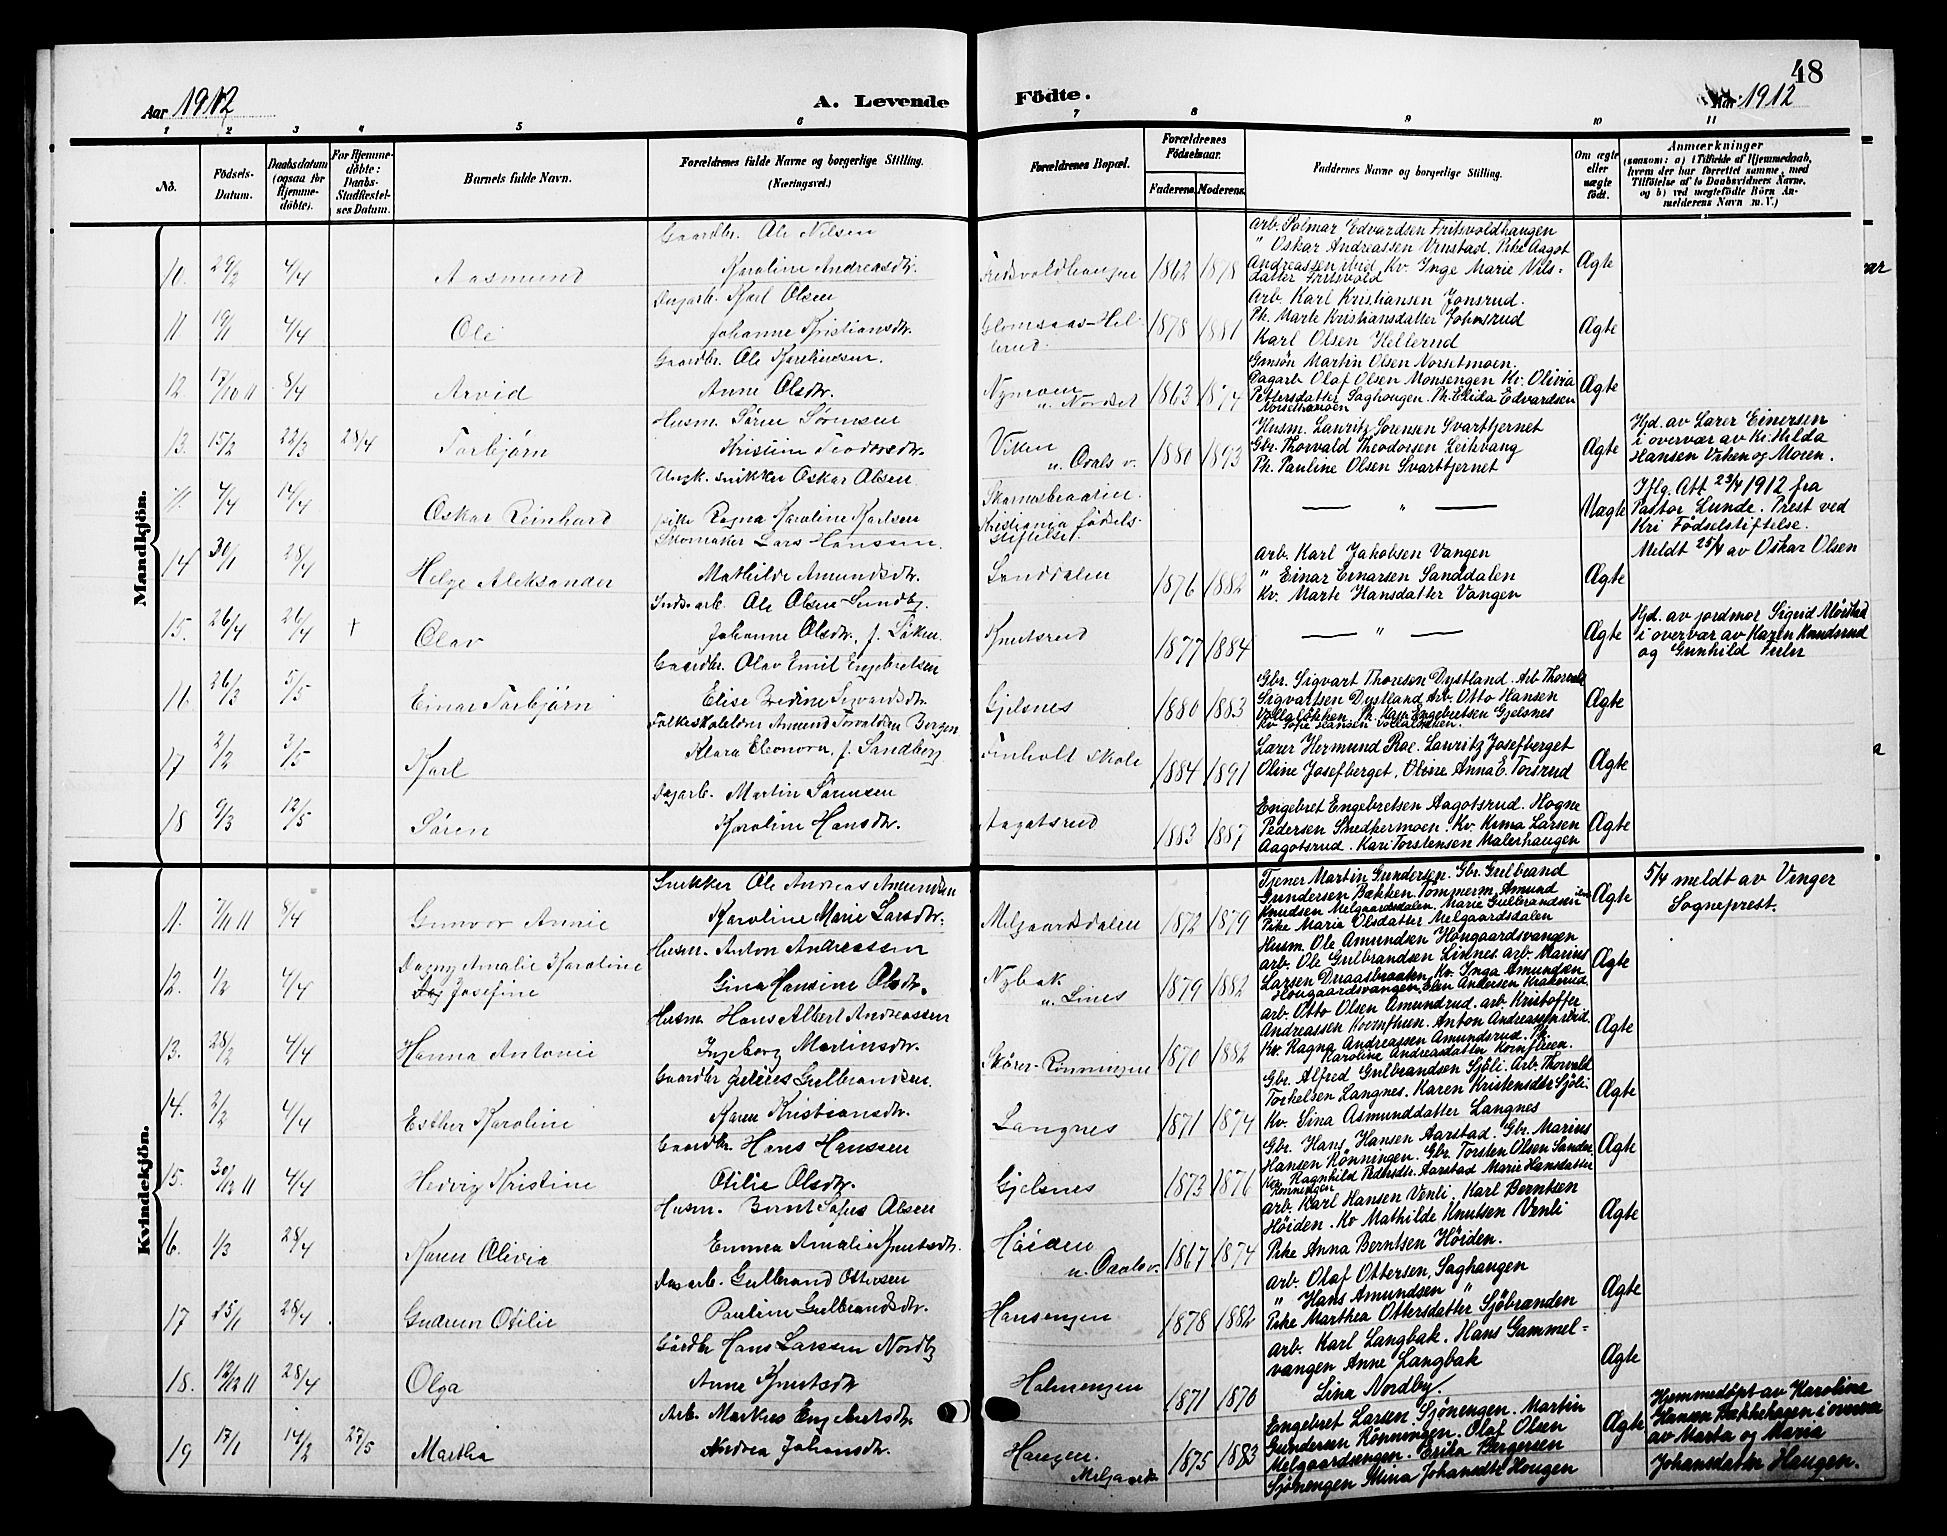 48
Aar 1912
A. Levende Födte.
Aar 1912
1 2 3 4 5 6 7 8 9 10 11
No.
Födsels-Datum.
Daabsdatum (ogsaa for Hjemme-döbte).
For Hjemme-döbte: Daabs-Stadfæstel-ses Datum.
Barnets fulde Navn.
Forældrenes fulde Navne og borgerlige Stilling.
(Næringsvei.)
Forældrenes Bopæl.
Forældrenes Födselsaar.
Faderens. Moderens.
Faddernes Navne og borgerlige Stilling.
Om ægte eller uægte födt.
Anmærkninger
(saasom: a) i Tilfælde af Hjemmedaab,
hvem der har forrettet samme, med
Tilföielse af to Daabsvidners Navne,
og b) ved uægtefödte Börn An-
melderens Navn m. V.)
Mandkjön.
10. 29/2 4/4 Aasmund
Gaardbr. Ole Nilsen
Karoline Andreasdtr.
1862 1878
Arb. Solmar Edvardsen Fritsvoldhaugen
" Oskar Andreassen Vrustad. Pike Aagot
Andreassen ibid. Kv. Inge Marie Nils-
datter Fritsvold
Ægte
11 19/1 4/4 Ole
Dagarb. Karl Olsen
Johanne Kristiansdtr.
Glomsaas-Hel-
lerud.
1878 1881
Arb. Karl Kristiansen Jonsrud.
Ph. Marte Kristiansdatter Johnsrud
Karl Olsen Hellerud
Ægte
12 17/10 11 8/4 Arvid
Gaardbr. Ole Karelinssen.
Anne Olsdtr.
Nymoen
u. Nordset
1863 1874
Gmsön Martin Olsen Norsetmoen.
Dagarb. Olaf Olsen Monsengen Kv. Olivia
Pettersdatter Saghougen. Ph. Elida Edvardsen
Norsethamoen
Ægte
13. 15/2 22/3 28/4 Torbjørn
Husm. Søren Sørensen
Kristine Teodorsdtr.
Viken
u. Ovals v.
1880 1893
Husm. Lauritz Sorensen Svartbjernet
Gbr. Thorvald Theodorsen Leikvang
Ph. Pauline Olsen Svartbjernet
Ægte
Hjd. av Lærer Einersen
i overvær av Kv. Hilda
Hansen Viken og Moren.
11. 4/4 14/4 Oskar Reinhard
Ungk. snikker Oskar Olsen
pike Ragna Karoline Karlsen
Skarnesbraaten.
Kristiania födsels-
stiftelse.
— " —
Uægte
Iflg. Att 23/4 1912 fra
Pastor Lunde. Prest ved
Kri Födselstiftelse.
Meldt 25/4 av Oskar Olsen
14 30/1 28/4 Helge Aleksander
Skomaker Lars Hanssen.
Mathilde Amundsdtr.
Sanddalen
1876 1882
Arb. Karl Jakobsen Vangen
" Einar Einarsen Sanddalen
Kv. Marte Hansdatter Vangen
Ægte
15. 26/4 26/4 + Olav
Indsarb. Ole Olsen Sundby.
Johanne Olsdtr.
Knutsrud
1877 1884
— " —
Ægte
Hjd. av jordmor Sigrid Mörstad
i overvær av Karen Knudsrud
og Gunhild
16 26/3 5/5 Einar Torbjørn
Gaardbr. Olav Emil Engebretsen
Elise Sigvardsdtr.
Gjelsnes
1880 1883
Gbr. Sigvart Thoresen Dystland. Arb Thorvald
Sigvartsen Dystland Arb. Otto Hansen
Vollalökken. Ph. Karen Engebretsen Gjelsnes
Kv. Sofie Hansen Vollalökken.
Ægte
17 2/2 3/5 Karl
Folkeskolelærer Amund Torvaldsen Bergen
Klara Eleonora, f. Sandberg
Finholt Skole
1884 1891
Lærer Hermund Roe. Lauritz Josefberget
Oline Josefberget, Oline Anna E. Torsrud
Ægte
18 9/3 12/5 Søren
Dagarb. Martin Sørensen
Karoline Hansdtr.
Aagotsrud
1883 1887
Engebret Engebretsen Aagotsrud. Hogne
Pedersen Snedkermoen. Kv. Kima Larsen
Aagotsrud. Kari Torstensen Malerhaugen
Ægte
Kvindekjön.
11. 7/11 11 8/4 Gunvor Annie
Snekker Ole Andreas Amundsen
Karoline Marie Larsdtr.
Melgaardsdalen
1872 1879
Tjener Martin Gundersen. Gbr. Gulbrand
Gundersen Bakken Tömmerm. Amund
Knudsen Melgaardsdalen. Marie Gulbrandsen
Pike Maria Olsdatter Melgaardsdalen
Ægte
5/4 meldt av Vinger
Sogneprest.
12. 1/2 4/4 Dagny Amalie Karoline
Josefine
Husm. Anton Andreassen
Gina Hansine Olsdtr.
Nybak
u. Lines
1879 1882
Husm. Ole Amundsen Hougaardsvangen
arb. Ole Gulbrandsen Lineset. arb. Marius
Larsen Draasbraaten Kv. Inga Amundsen
Hougaardsvangen. Elen Andersen Krakerud.
Ægte
13. 28/2 4/4 Hanna Antonie
Husm. Hans Albert Andreassen
Ingeborg Martinsdtr.
Skörer-Rönningen
1870 1882
arb. Otto Olsen Amundrud. arb Kristoffer
Andreassen Kvernfluen. Anton Andreassen ibid.
Kv. Ragna Andreassen Amundsrud. Ph.
Karoline Andreasdatter Kornfluen.
Ægte
14. 2/2 4/4 Esther Karoline
Gaardbr Julius Gulbrandsen.
Karen Kristiansdtr.
Langnes
1871 1874
Gbr. Alfred Gulbrandsen Sjöli. Arb. Thorvald
Torkelsen Langnes. Karen Kristensdtr Sjöli.
Kv. Sina Asmunddatter Langnes
Ægte
15. 30/12 11 4/4 Hedvig Kristine
Gaardbr. Hans Hanssen
Otilie Olsdtr.
Gjelsnes
1873 1876
Gbr. Hans Hansen Aarstad. Gbr. Marius
Hansen Rönningen. Gbr Torsten Olsen Sander
Kv. Ragnhild Pedersdtr. Aarstad Marie Hansdatter
Rönningen
Ægte
16. 1/3 28/4 Karen Olivia
Husm. Bernt Sofus Olsen
Emma Amalie Knutsdtr.
Høiden
u. Oaals v.
1867 1874
arb. Karl Hansen Venli. Karl Berntsen
Höiden. Kv Mathilde Knutsen Venli
Pike Anna Berntsen Höiden.
Ægte
17 15/1 28/4 Gudrun Otilie
Dagarb. Gulbrand Ottersen
Pauline Gulbrandsdtr.
Hansengen
1878 1882
arb. Olaf Ottersen, Saghaugen
" Hans Amundsen "
Pike Marthea Ottersdatter Sjöbranden
Ægte
18. 12/12 11 28/4 Olga
Gårdbr Hans Larssen Nordby
Anne Knutsdtr
Holmengen
1871 1870
arb. Karl Langbak. Hans Gammel=
vangen Anne Langbak
Lina Nordby.
Ægte
19 17/1 14/2 27/5 Martha
Arb. Markus Engebretsdtr.
Andrea Johansdtr.
Haugen.
Melgaards.
1875 1883
Engebret Larsen. Sjönengen. Martin
Gundersen Rönningen. Olaf Olsen
Melgaardsengen. Erika Bergersen
Sjönengen Stina Johansdtr Hougen
Ægte
Hjemmedöpt av Karoline
Hansen Bækkehagen i overvær
av Marta og Maria
Johansdatter Haugen.